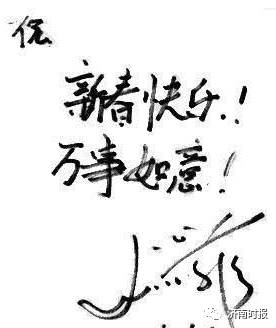 新春快乐!
万事如意!
济南时报